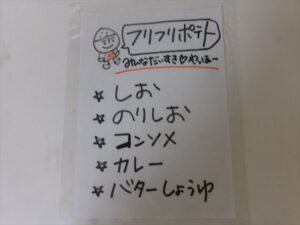 フリフリポテト
みんなだいすき♡やっほ〜
☆しお
☆のりしお
☆コンソメ
☆カレー
☆バターしょうゆ